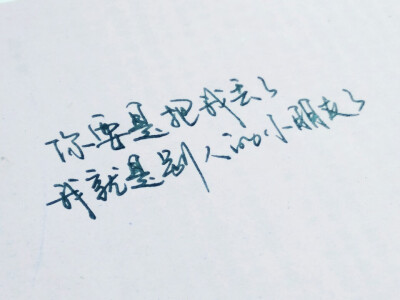 你要是把我丢了
我就是别人的小朋友了